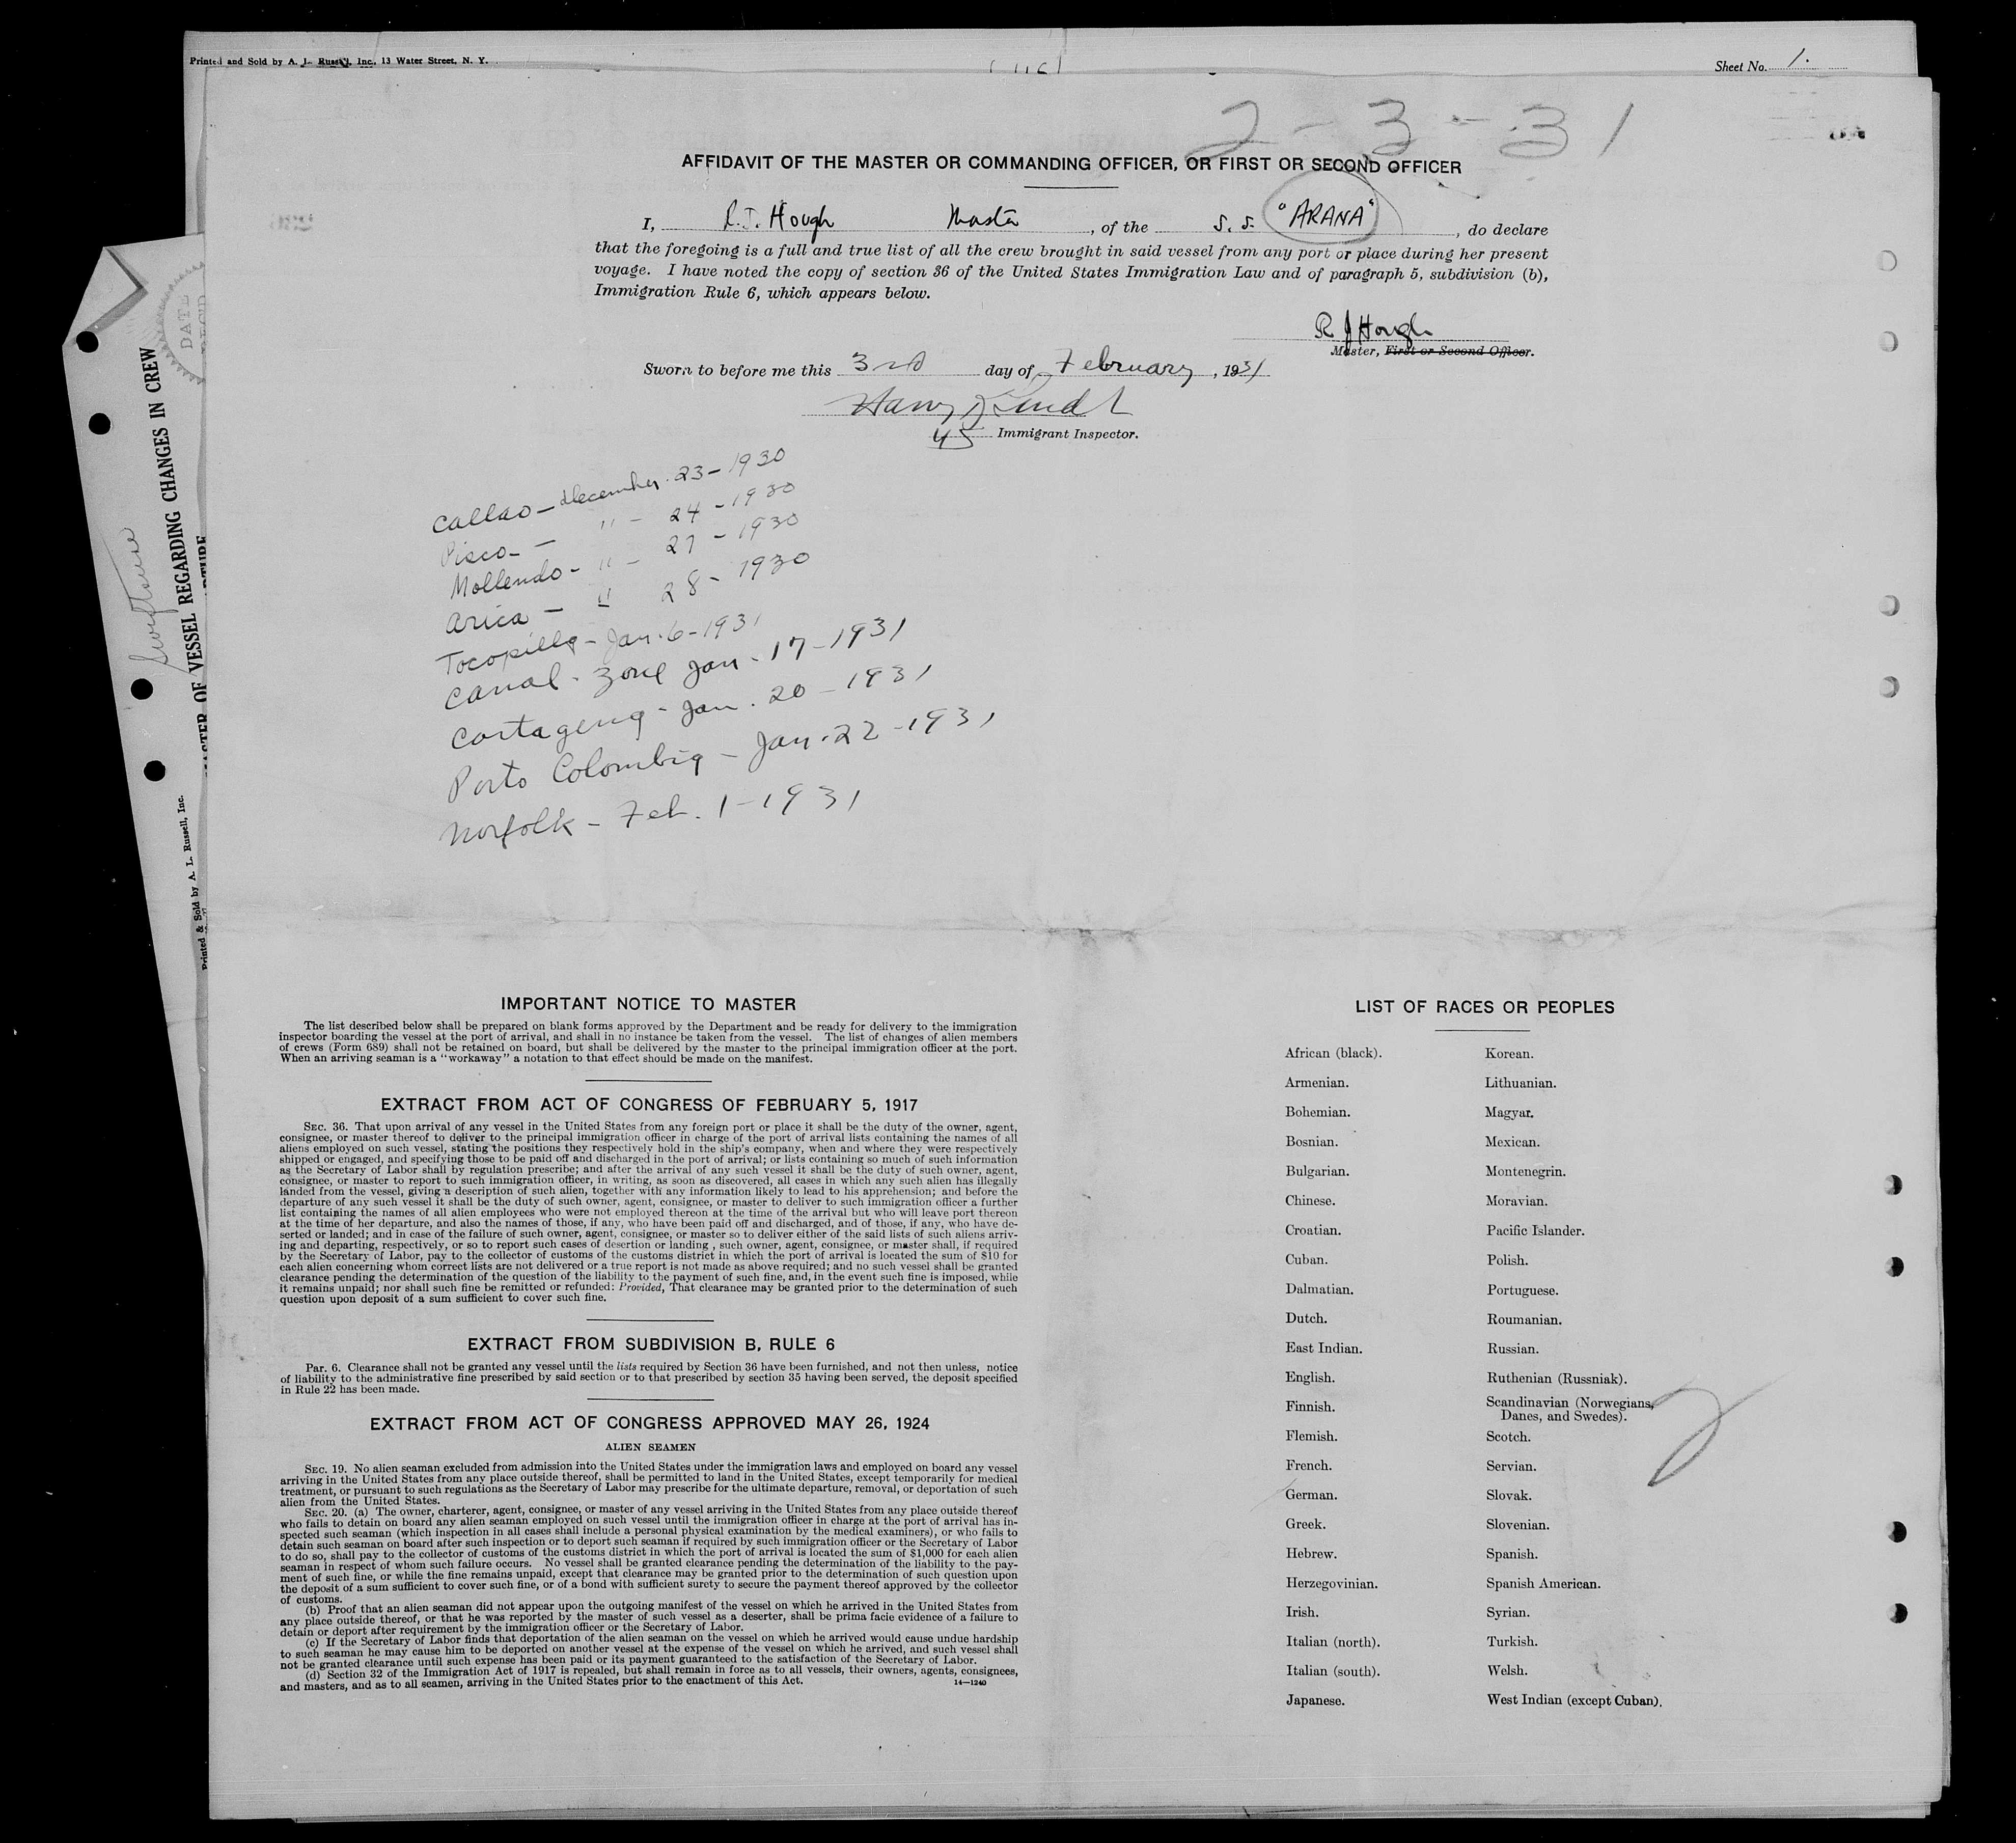 Printed and Sold by A. L. Russell, Inc., 13 Water Street, N. Y.
Sheet No. 1.
2 - 3 - 31
AFFIDAVIT OF THE MASTER OR COMMANDING OFFICER, OR FIRST OR SECOND OFFICER
I, R. J. Hough Master, of the S. S. "ARANA", do declare
that the foregoing is a full and true list of all the crew brought in said vessel from any port or place during her present
voyage. I have noted the copy of section 36 of the United States Immigration Law and of paragraph 5, subdivision (b),
Immigration Rule 6, which appears below.
R J Hough
Master, First or Second Officer.
Sworn to before me this 3rd day of February, 1931
Harry
45 Immigrant Inspector.
Callao - December. 23 - 1930
Pisco - - " - 24 - 1930
Mollendo - " - 27 - 1930
Arica - " 28 - 1930
Tocopilla - Jan. 6 - 1931
Canal - Zone Jan - 17 - 1931
Cartagena - Jan. 20 - 1931
Porto Colombia - Jan. 22 - 1931
Norfolk - Feb. 1 - 1931
DATE
MASTER OF VESSEL REGARDING CHANGES IN CREW
Printed & Sold by A. L. Russell, Inc.
IMPORTANT NOTICE TO MASTER
The list described below shall be prepared on blank forms approved by the Department and be ready for delivery to the immigration
inspector boarding the vessel at the port of arrival, and shall in no instance be taken from the vessel. The list of changes of alien members
of crews (Form 689) shall not be retained on board, but shall be delivered by the master to the principal immigration officer at the port.
When an arriving seaman is a "workaway" a notation to that effect should be made on the manifest.
EXTRACT FROM ACT OF CONGRESS OF FEBRUARY 5, 1917
SEC. 36. That upon arrival of any vessel in the United States from any foreign port or place it shall be the duty of the owner, agent,
consignee, or master thereof to deliver to the principal immigration officer in charge of the port of arrival lists containing the names of all
aliens employed on such vessel, stating the positions they respectively hold in the ship's company, when and where they were respectively
shipped or engaged, and specifying those to be paid off and discharged in the port of arrival; or lists containing so much of such information
as the Secretary of Labor shall by regulation prescribe; and after the arrival of any such vessel it shall be the duty of such owner, agent,
consignee, or master to report to such immigration officer, in writing, as soon as discovered, all cases in which any such alien has illegally
landed from the vessel, giving a description of such alien, together with any information likely to lead to his apprehension; and before the
departure of any such vessel it shall be the duty of such owner, agent, consignee, or master to deliver to such immigration officer a further
list containing the names of all alien employees who were not employed thereon at the time of the arrival but who will leave port thereon
at the time of her departure, and also the names of those, if any, who have been paid off and discharged, and of those, if any, who have de-
serted or landed; and in case of the failure of such owner, agent, consignee, or master so to deliver either of the said lists of such aliens arriv-
ing and departing, respectively, or so to report such cases of desertion or landing, such owner, agent, consignee, or master shall, if required
by the Secretary of Labor, pay to the collector of customs of the customs district in which the port of arrival is located the sum of $10 for
each alien concerning whom correct lists are not delivered or a true report is not made as above required; and no such vessel shall be granted
clearance pending the determination of the question of the liability to the payment of such fine, and, in the event such fine is imposed, while
it remains unpaid; nor shall such fine be remitted or refunded: Provided, That clearance may be granted prior to the determination of such
question upon deposit of a sum sufficient to cover such fine.
EXTRACT FROM SUBDIVISION B, RULE 6
Par. 6. Clearance shall not be granted any vessel until the lists required by Section 36 have been furnished, and not then unless, notice
of liability to the administrative fine prescribed by said section or to that prescribed by section 35 having been served, the deposit specified
in Rule 22 has been made.
EXTRACT FROM ACT OF CONGRESS APPROVED MAY 26, 1924
ALIEN SEAMEN
SEC. 19. No alien seaman excluded from admission into the United States under the immigration laws and employed on board any vessel
arriving in the United States from any place outside thereof, shall be permitted to land in the United States, except temporarily for medical
treatment, or pursuant to such regulations as the Secretary of Labor may prescribe for the ultimate departure, removal, or deportation of such
alien from the United States.
SEC. 20. (a) The owner, charterer, agent, consignee, or master of any vessel arriving in the United States from any place outside thereof
who fails to detain on board any alien seaman employed on such vessel until the immigration officer in charge at the port of arrival has in-
spected such seaman (which inspection in all cases shall include a personal physical examination by the medical examiners), or who fails to
detain such seaman on board after such inspection or to deport such seaman if required by such immigration officer or the Secretary of Labor
to do so, shall pay to the collector of customs of the customs district in which the port of arrival is located the sum of $1,000 for each alien
seaman in respect of whom such failure occurs. No vessel shall be granted clearance pending the determination of the liability to the pay-
ment of such fine, or while the fine remains unpaid, except that clearance may be granted prior to the determination of such question upon
the deposit of a sum sufficient to cover such fine, or of a bond with sufficient surety to secure the payment thereof approved by the collector
of customs.
(b) Proof that an alien seaman did not appear upon the outgoing manifest of the vessel on which he arrived in the United States from
any place outside thereof, or that he was reported by the master of such vessel as a deserter, shall be prima facie evidence of a failure to
detain or deport after requirement by the immigration officer or the Secretary of Labor.
(c) If the Secretary of Labor finds that deportation of the alien seaman on the vessel on which he arrived would cause undue hardship
to such seaman he may cause him to be deported on another vessel at the expense of the vessel on which he arrived, and such vessel shall
not be granted clearance until such expense has been paid or its payment guaranteed to the satisfaction of the Secretary of Labor.
(d) Section 32 of the Immigration Act of 1917 is repealed, but shall remain in force as to all vessels, their owners, agents, consignees,
and masters, and as to all seamen, arriving in the United States prior to the enactment of this Act.
14—1240
LIST OF RACES OR PEOPLES
African (black). Korean.
Armenian. Lithuanian.
Bohemian. Magyar.
Bosnian. Mexican.
Bulgarian. Montenegrin.
Chinese. Moravian.
Croatian. Pacific Islander.
Cuban. Polish.
Dalmatian. Portuguese.
Dutch. Roumanian.
East Indian. Russian.
English. Ruthenian (Russniak).
Finnish. Scandinavian (Norwegians,
Danes, and Swedes).
Flemish. Scotch.
French. Servian.
German. Slovak.
Greek. Slovenian.
Hebrew. Spanish.
Herzegovinian. Spanish American.
Irish. Syrian.
Italian (north). Turkish.
Italian (south). Welsh.
Japanese. West Indian (except Cuban).
2